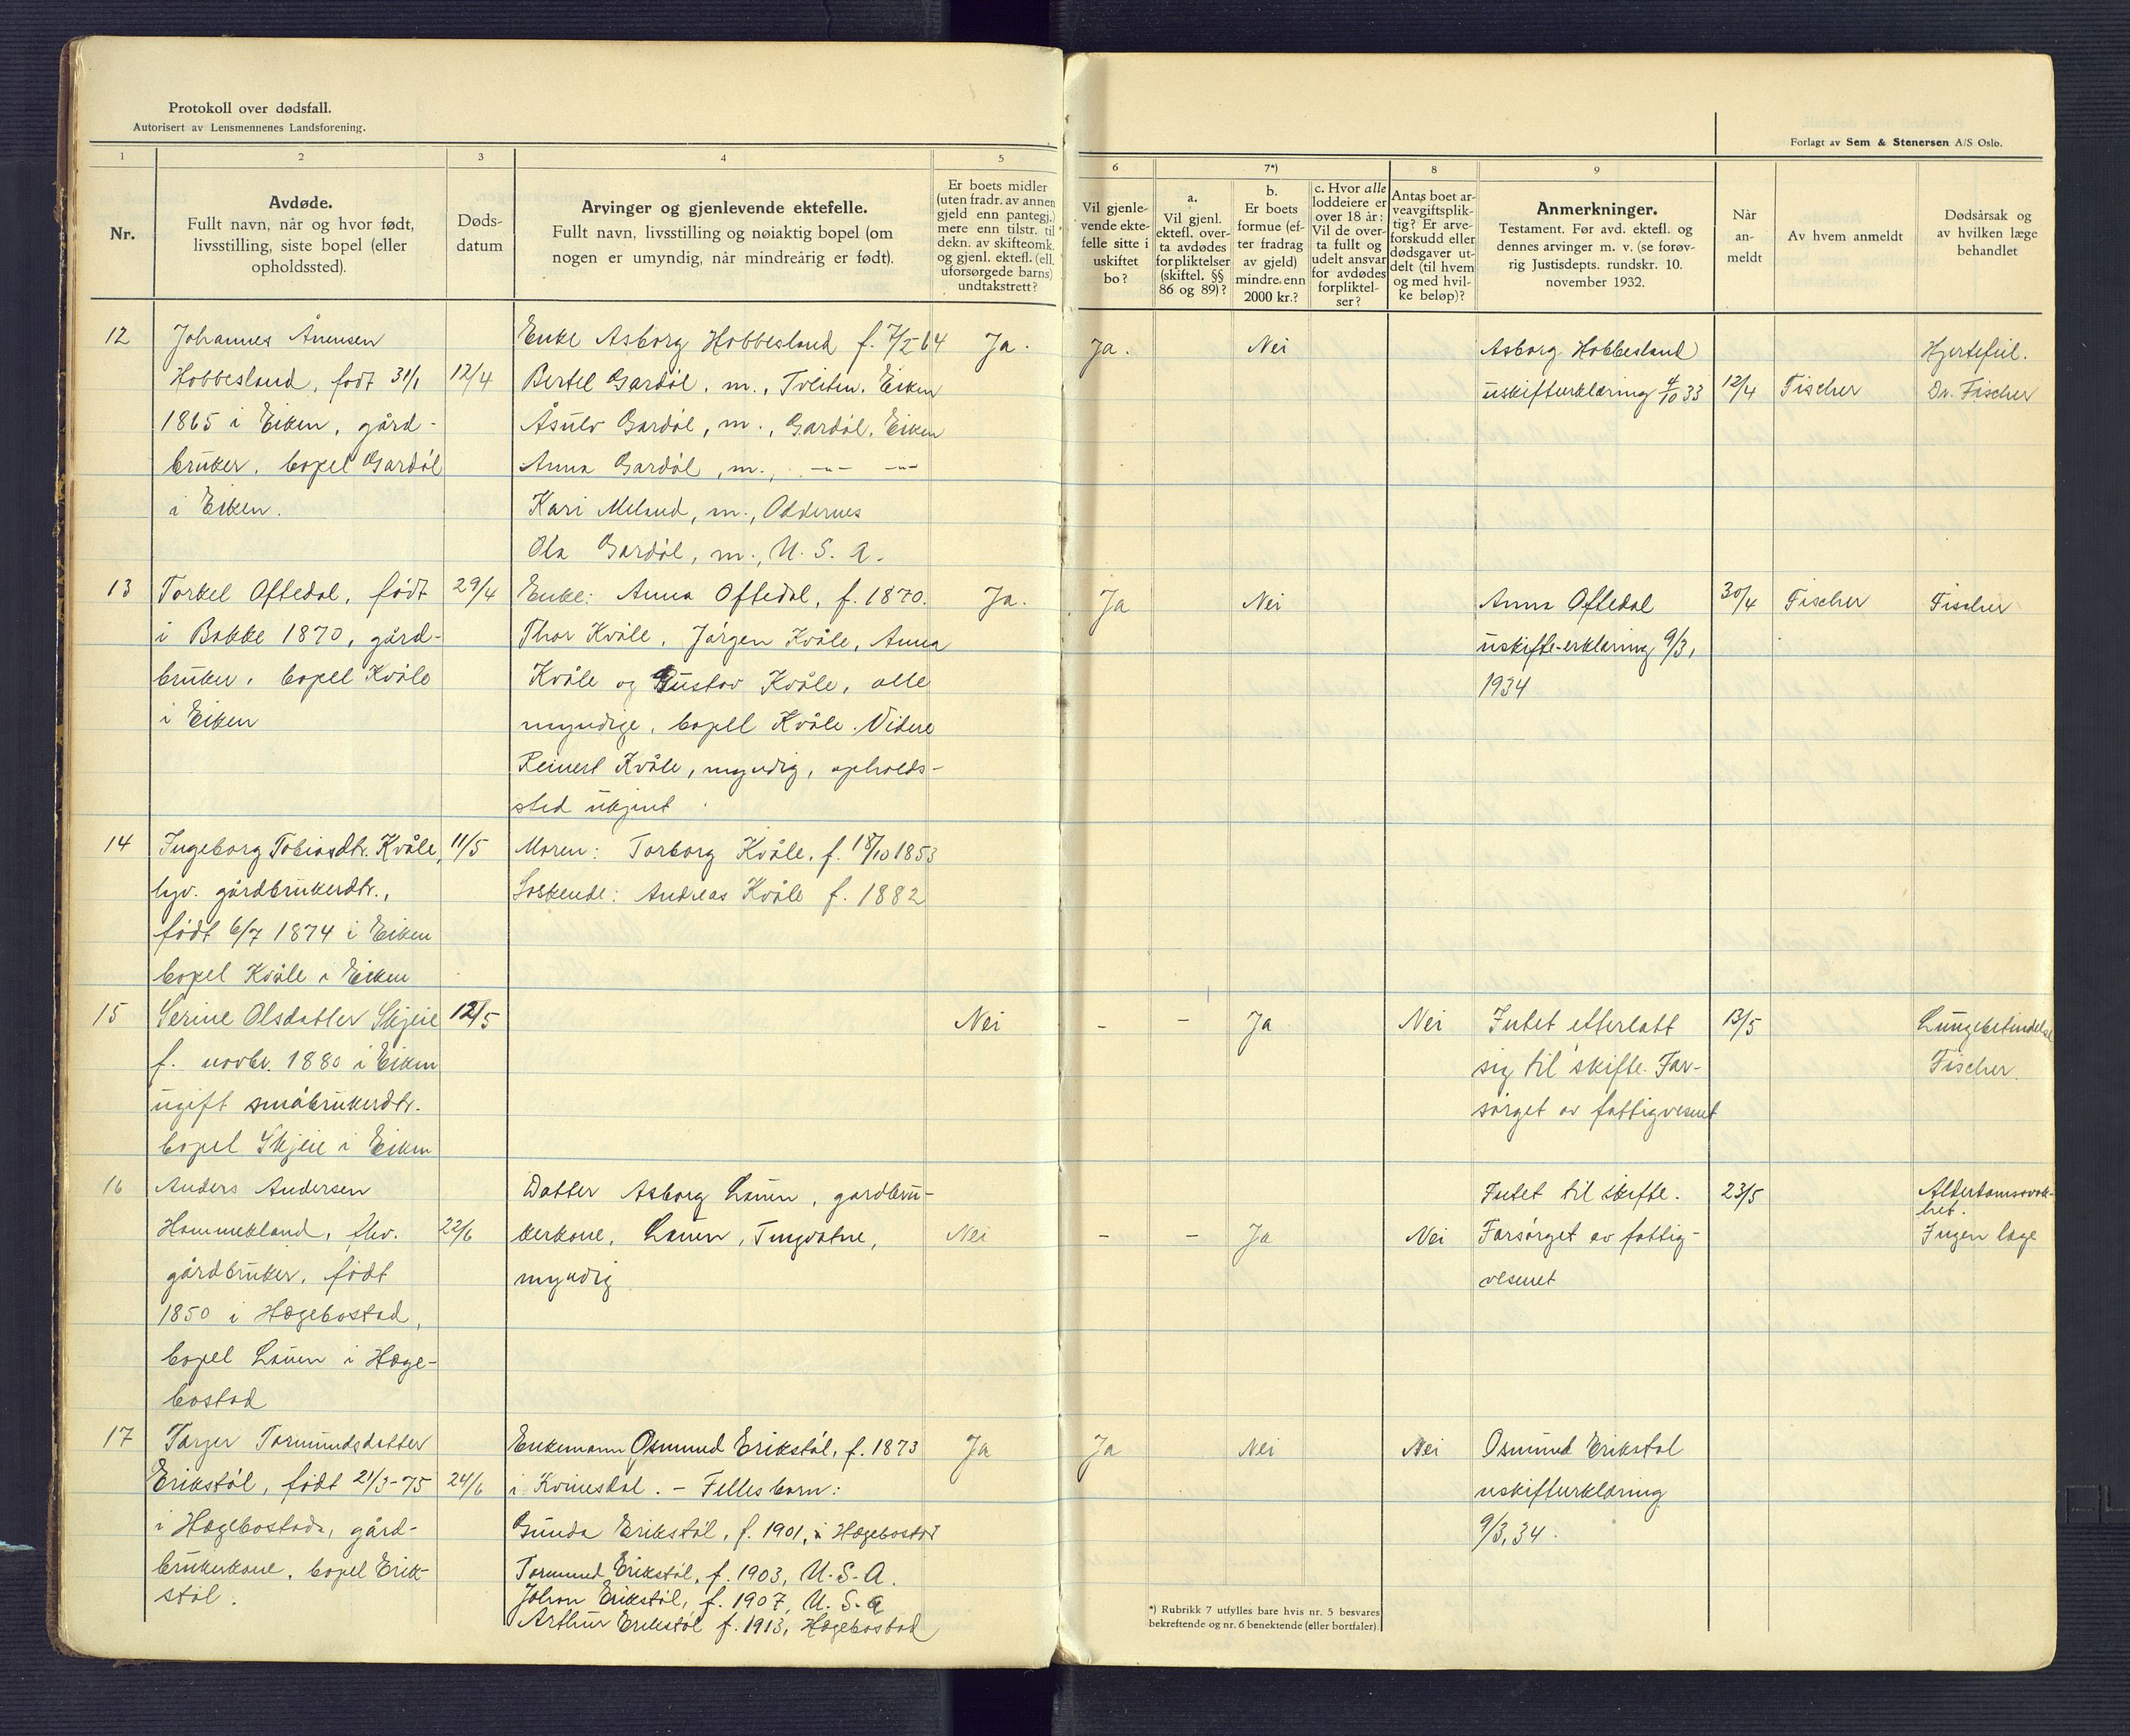 Protokoll over dødsfall.
Autorisert av Lensmennenes Landsforening.
Forlagt av Sem & Stenersen A/S Oslo.
1 2 3 4 5 6 7*) 8 9
Nr.
Avdøde.
Fullt navn, når og hvor født,
livsstilling, siste bopel (eller
opholdssted).
Døds-
datum
Arvinger og gjenlevende ektefelle.
Fullt navn, livsstilling og nøiaktig bopel (om
nogen er umyndig, når mindreårig er født).
Er boets midler
(uten fradr. av annen
gjeld enn pantegj.)
mere enn tilstr. til
dekn. av skifteomk.
og gjenl. ektefl. (ell.
uforsørgede barns)
undtakstrett?
Vil gjenle-
vende ekte-
felle sitte i
uskiftet
bo?
a.
Vil gjenl.
ektefl. over-
ta avdødes
forpliktelser
(skiftel. §§
86 og 89)?
b.
Er boets
formue (ef-
ter fradrag
av gjeld)
mindre enn
2000 kr.?
c. Hvor alle
loddeiere er
over 18 år:
Vil de over-
ta fullt og
udelt ansvar
for avdødes
forpliktel-
ser?
Antas boet ar-
veavgiftsplik-
tig? Er arve-
forskudd eller
dødsgaver ut-
delt (til hvem
og med hvil-
ke beløp)?
Anmerkninger.
Testament. Før avd. ektefl. og
dennes arvinger m. v. (se forøv-
rig Justisdepts. rundskr. 10.
november 1932.
Når
an-
meldt
Av hvem anmeldt
Dødsårsak og
av hvilken læge
behandlet
12
Johannes Ånensen
Hobbesland, født 31/1
1865 i Eiken, gård-
bruker, bopel Gardøl
i Eiken.
12/4
Enke Asborg Hobbesland f. 7/5 64
Bertel Gardøl, m., Tveiten, Eiken
Åsulv Gardøl, m., Gardøl, Eiken
Anna Gardøl, m., -"- -"-
Kari Meland, m., Oddernes
Ola Gardøl, m., U. S. A.
Ja.
Ja.
Nei
Asborg Hobbesland
uskifteerklæring 4/10 33
12/4
Fischer
Hjertefeil.
Dr. Fischer
13
Torkel Oftedal, født
i Bakke 1870, gård-
bruker, bopel Kvåle
i Eiken
29/4
Enke: Anna Oftedal, f. 1870.
Thor Kvåle, Jørgen Kvåle, Anna
Kvåle og Gustav Kvåle, alle
myndige, bopel Kvåle. Videre
Reinert Kvåle, myndig, opholds-
sted ukjent
Ja.
Ja
Nei
Anna Oftedal
uskifte-erklæring 9/3,
1934
30/4
Fischer
Fischer
14
Ingeborg Tobiasdtr. Kvåle,
hgv. gårdbrukerdtr.,
født 6/7 1874 i Eiken
bopel Kvåle i Eiken
11/5
Moren: Torborg Kvåle, f. 18/10 1853
Søskende: Andreas Kvåle f. 1882
15
Serine Olsdatter Skjeie
f. novbr. 1880 i Eiken
ugift småbrukerdtr.
bopel Skjeie i Eiken
12/5
Nei
-
-
Ja
Nei
Intet efterlatt
sig til skifte. For-
sørget av fattigvesnet
13/5
Lungebetendelse
Fischer.
16
Anders Andersen
Hommekland, fhv.
gårdbruker, født
1850 i Hægebostad,
bopel Lauen i Hæge-
bostad
22/6
Datter Asborg Lauen, gardbru-
kerkone, Lauen, Tingvatne,
myndig
Nei
-
-
Ja
Nei
Intet til skifte.
Forsørget av fattig-
vesenet
23/5
Alderdomssvak-
het.
Ingen læge
17
Torjer Tormundsdatter
Erikstøl, født 21/3-75
i Hægebostad, gård-
brukerkone, bopel Erik-
støl.
24/6
Enkemann Osmund Erikstøl, f. 1873
i Kvinesdal. - Fellesbarn:
Gunda Erikstøl, f. 1901, i Hægebostad
Tormund Erikstøl, f. 1903, U. S. A.
Johan Erikstøl, f. 1907, U. S. A
Arthur Erikstøl f. 1913, Hægebostad
Ja
Ja
Nei
Nei
Osmund Erikstøl
uskifteerklæring
9/3, 34.
*) Rubrikk 7 utfylles bare hvis nr. 5 besvares
bekreftende og nr. 6 benektende (eller bortfaler)